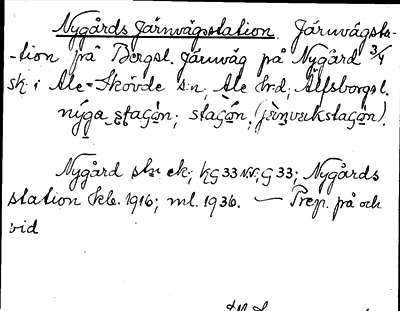 Nygårds Järnvägsstation. Järnvägsta-
-tion på Bergsl. Järnväg på Nygård 3/4
sk. i Ale-Skövde s:n, Ale hrd, Älfsborgs l.
nýga staσo̱n; staσo̱n, (jä̀ṉverkstaσo̱n).
Nygård stn ek; kG 33 NV; G 33; Nygårds
station kb. 1916; ml. 1936. — Prep. på och
vid